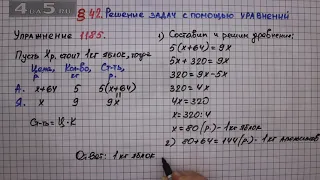 4da5.ru
§ 42. Решение задач с помощью уравнений
Упражнение 1185.
Пусть x р. стоит 1 кг яблок, тогда
Цена, Кол-во, Ст-ть,
р. кг р.
А. x+64 5 5(x+64)
Я. x 9 9x
Ст-ть = Ц · К
1) Составим и решим уравнение:
5(x+64) = 9x
5x + 320 = 9x
320 = 9x - 5x
320 = 4x
4x = 320
x = 320 : 4
x = 80 (р.) - 1 кг яблок
2) 80+64 = 144 (р.) - 1 кг апельсинов
Ответ: 1 кг яблок